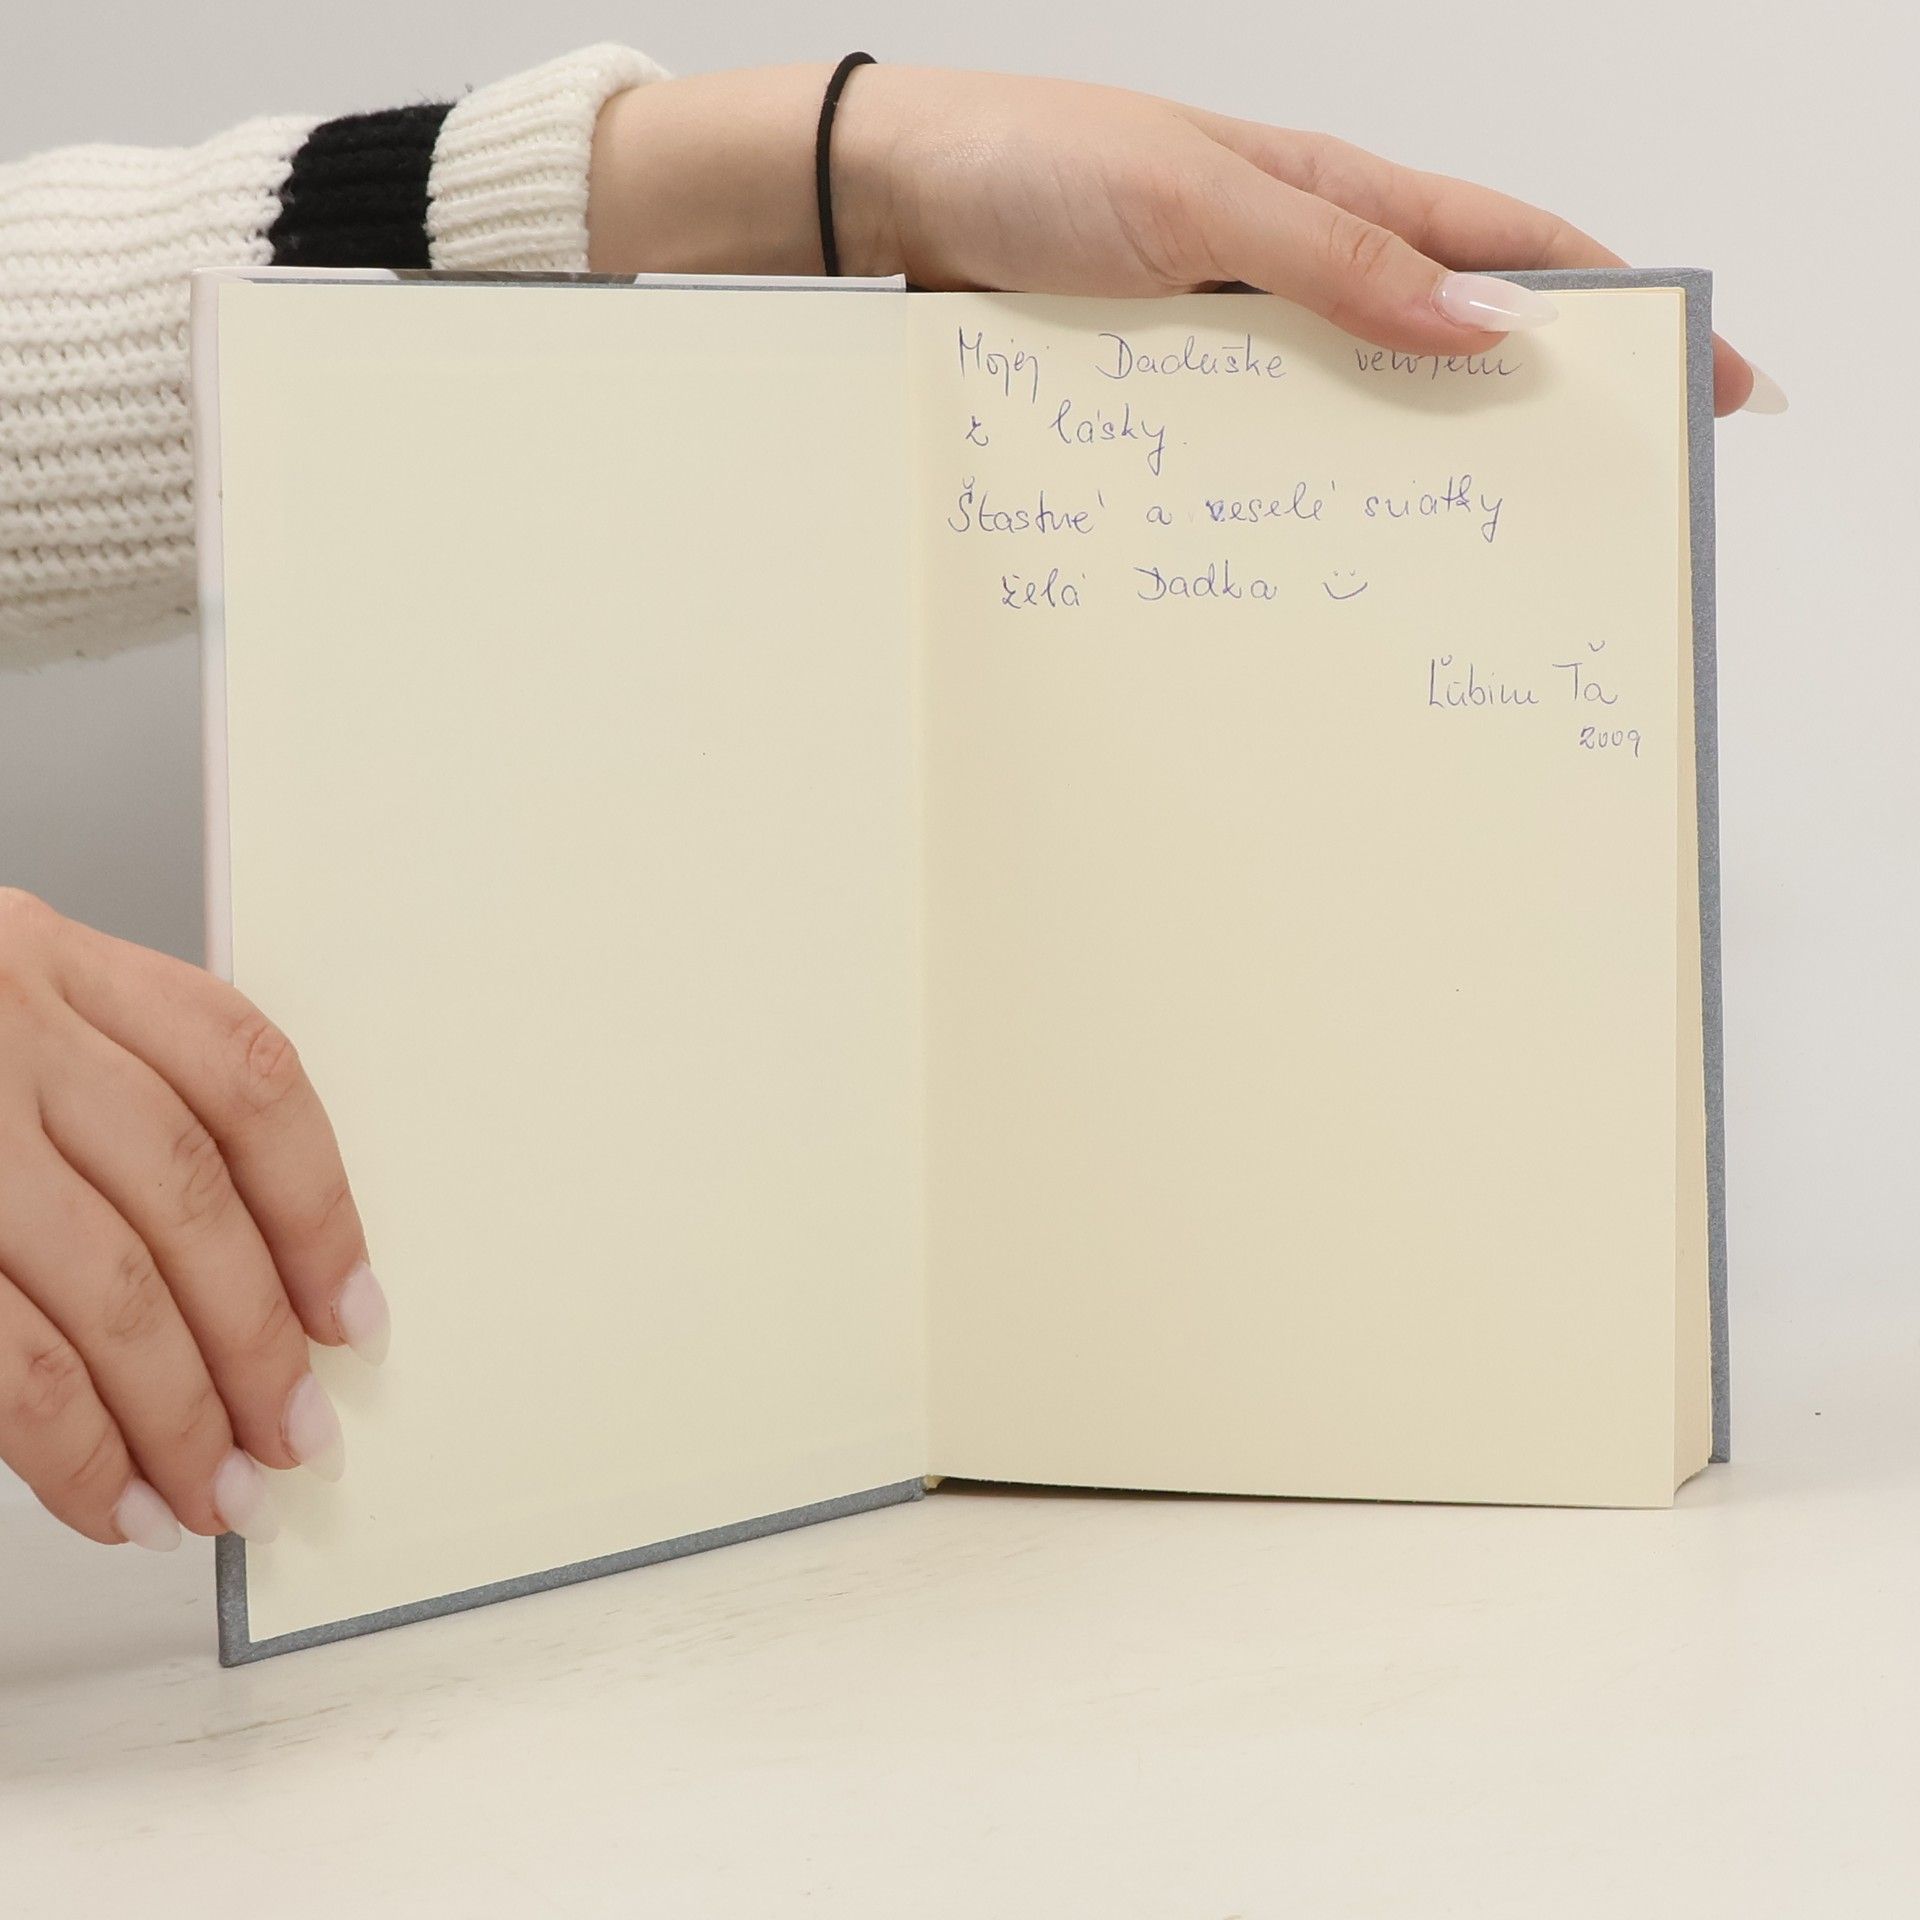 Mojej Daduške venujem
z lásky.
Štastné a veselé sviatky
želá Dadka
Ľúbim Ťa
2009